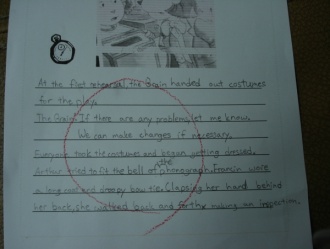 9
At the first rehearsal, the Brain handed out costumes
for the play.
The Brain: If there are any problem, let me know.
We can make changes if necessary.
Everyone took the costumes and began getting dressed.
Arthur tried to fit the bell of the phonograph. Francine wore
a long coat and droopy bow tie. Clasping her hand behind
her back, she walked back and forth, making an inspection.